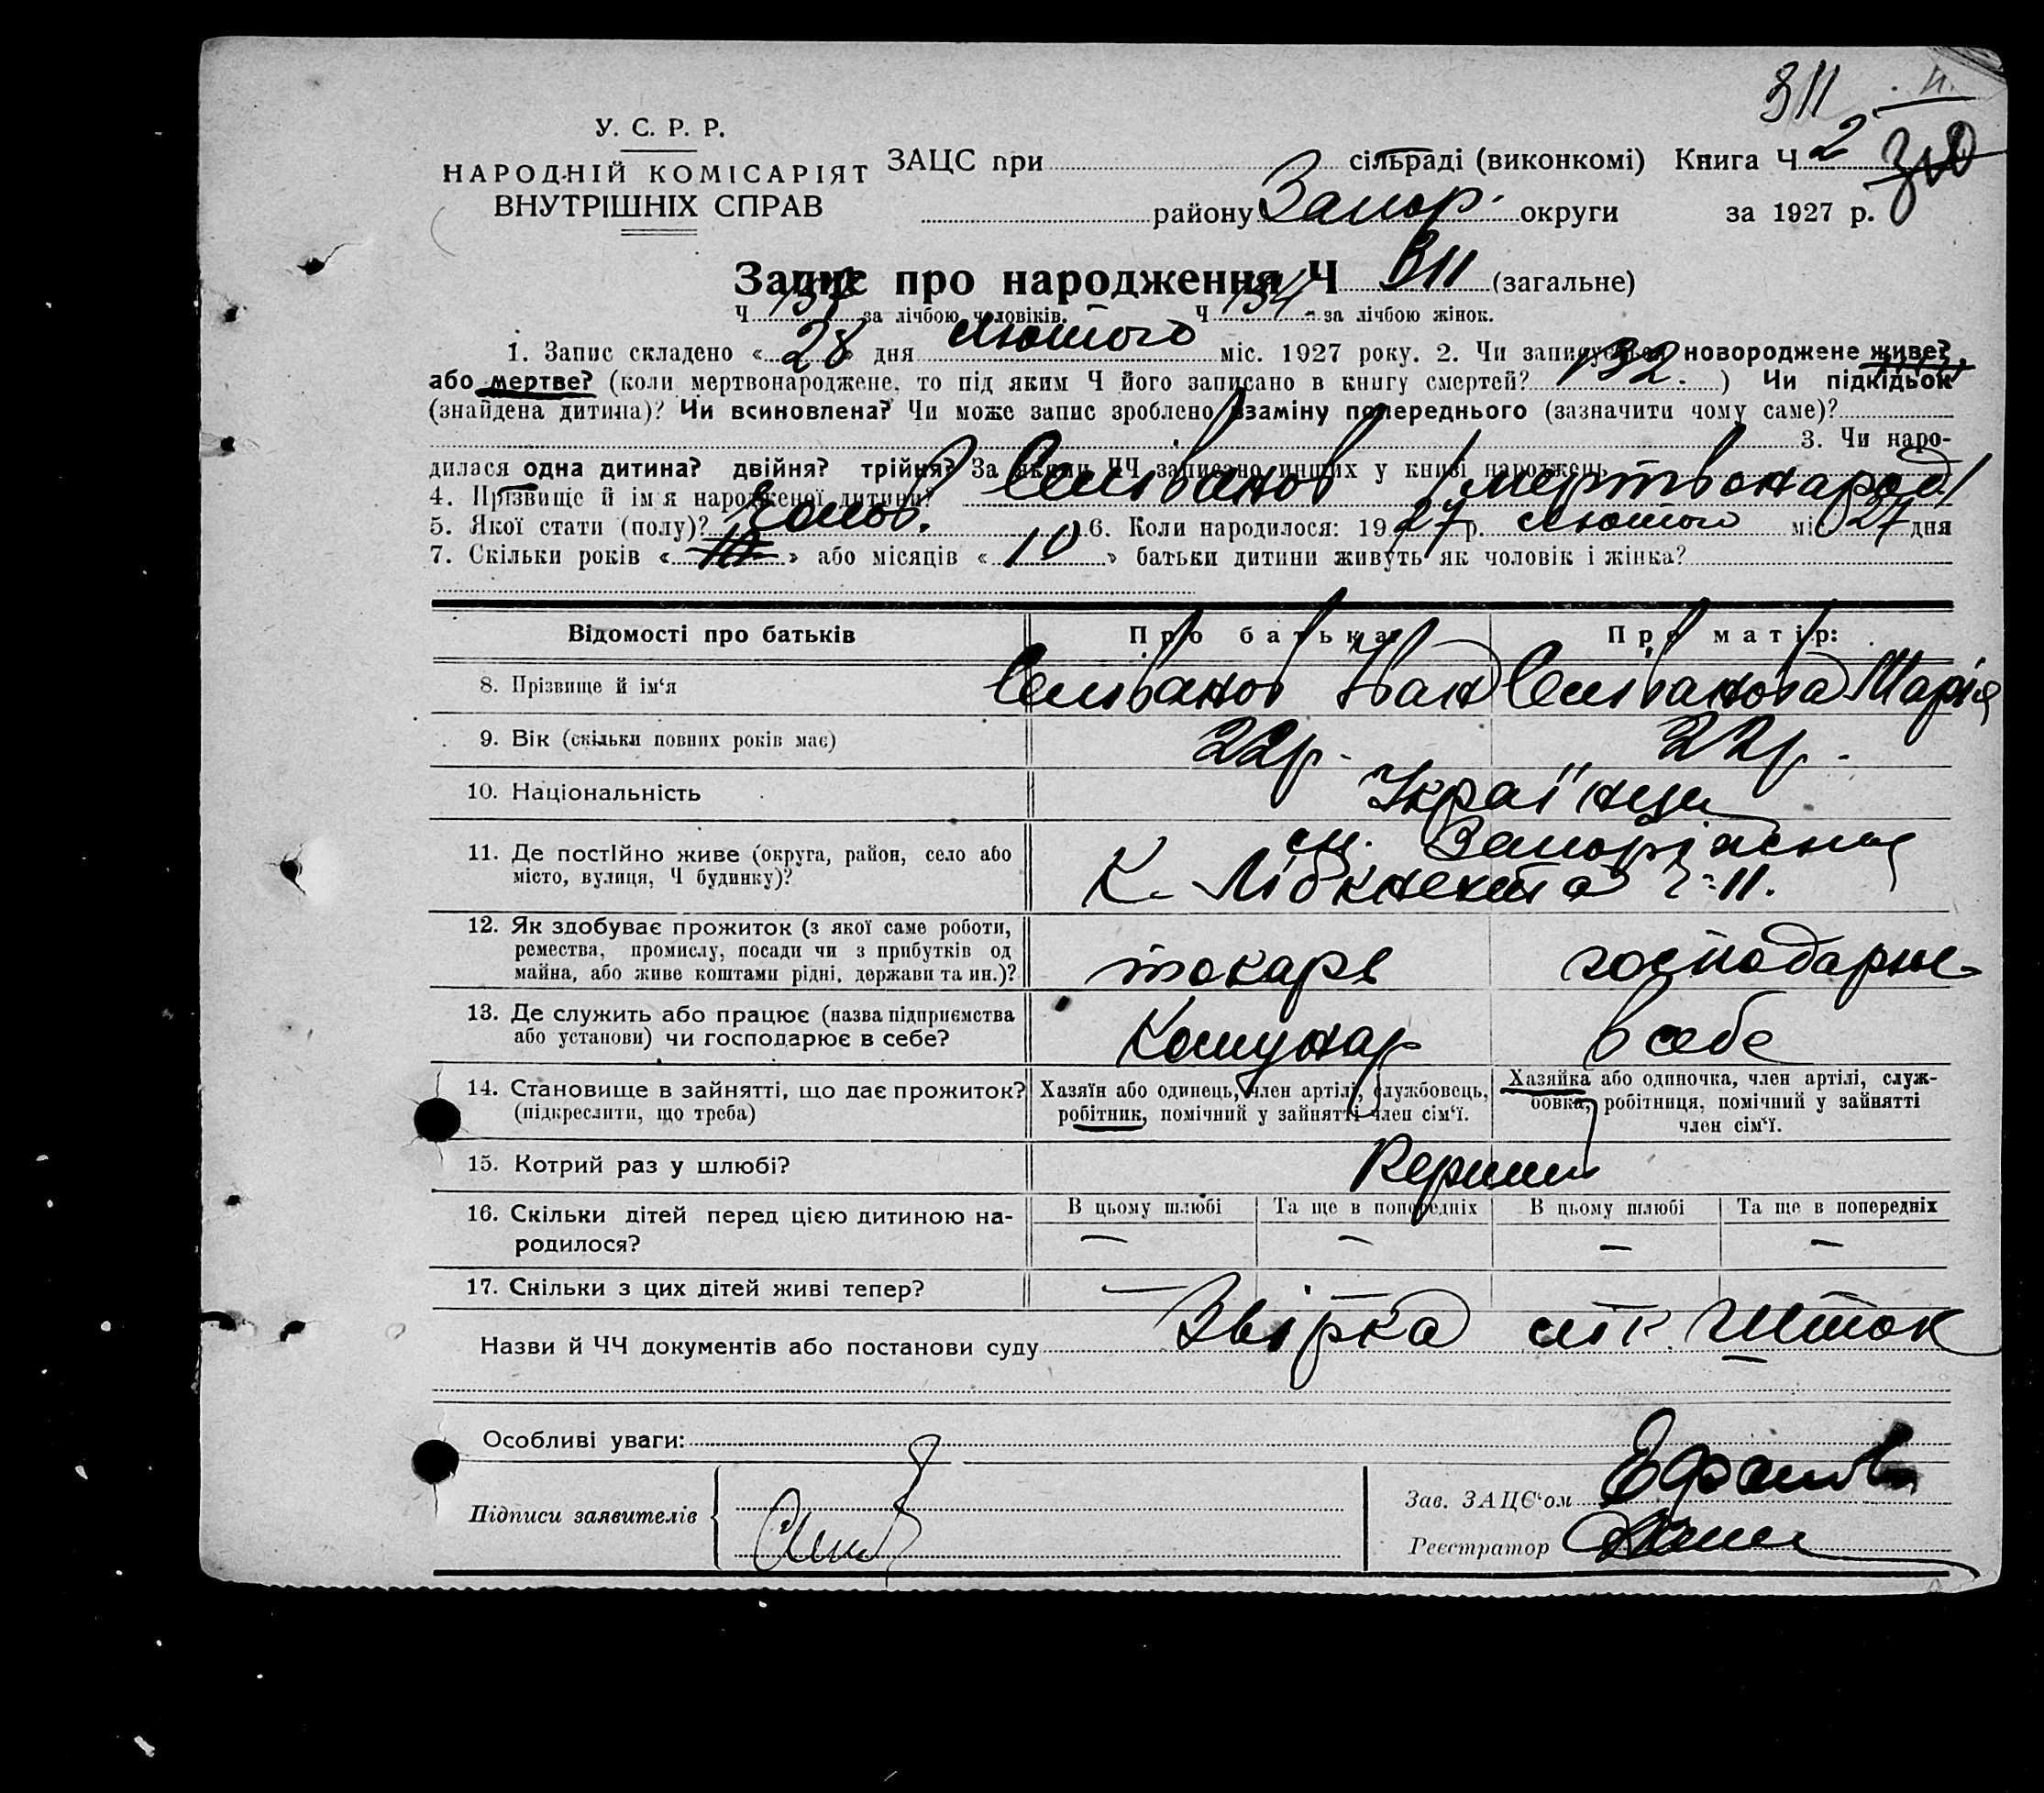 311
У. С. Р. Р.
НАРОДНІЙ КОМІСАРІЯТ
ВНУТРІШНІХ СПРАВ
ЗАЦС при сільраді (виконкомі) Книга Ч 2
району Запор. округи за 1927 р.
Запис про народження Ч 311 (загальне)
Ч за лічбою чоловіків. Ч 134 за лічбою жінок.
1. Запис складено «28» дня лютого міс. 1927 року. 2. Чи записується новороджене живе?
або мертве? (коли мертвонароджене, то під яким Ч його записано в книгу смертей? 132.) Чи підкідьок
(знайдена дитина)? Чи всиновлена? Чи може запис зроблено взаміну попереднього (зазначити чому саме)?
3. Чи наро-
дилася одна дитина? двійня? трійня? За якими ЧЧ записано инших у книзі народжень
4. Прізвище й ім'я народженої дитини? Селіванов /мертвонарод/
5. Якої стати (полу)? чолов. 6. Коли народилося: 1927 р. лютого міс. 27 дня
7. Скільки років « » або місяців «10» батьки дитини живуть як чоловік і жінка?
Відомості про батьків Про батька: Про матір:
8. Прізвище й ім'я Селіванов Іван Селіванова Марія
9. Вік (скільки повних років має) 22 р. 22 р.
10. Національність Українці
11. Де постійно живе (округа, район, село або
місто, вулиця, Ч будинку)?
м. Запоріжжя
К. Лібкнехта Ч-11.
12. Як здобуває прожиток (з якої саме роботи,
ремества, промислу, посади чи з прибутків од
майна, або живе коштами рідні, держави та ин.)?
токарь господарює
13. Де служить або працює (назва підприємства
або установи) чи господарює в себе?
Комунар в себе
14. Становище в зайнятті, що дає прожиток?
(підкреслити, що треба)
Хазяїн або одинець, член артілі, службовець,
робітник, помічний у зайнятті член сім'ї.
Хазяйка або одиночка, член артілі, служ-
бовка, робітниця, помічний у зайнятті
член сім'ї.
15. Котрий раз у шлюбі? Перший
16. Скільки дітей перед цією дитиною на-
родилося?
В цьому шлюбі Та ще в попередніх В цьому шлюбі Та ще в попередніх
— — — —
17. Скільки з цих дітей живі тепер? — —
Назви й ЧЧ документів або постанови суду Звірка
Особливі уваги:
Підписи заявителів
Зав. ЗАЦС'ом
Реєстратор